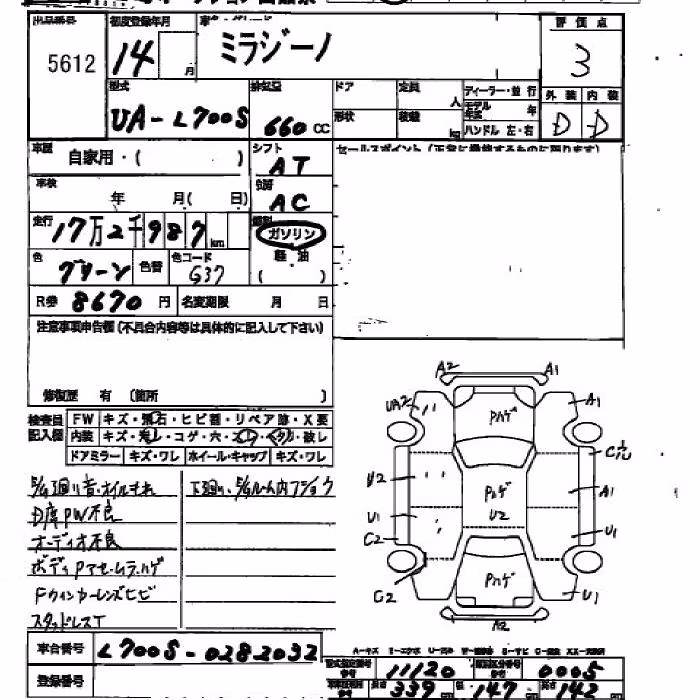 出品番号 初度登録年月 車名・グレード 評価点
5612 14 月 ミラジーノ 3
型式 排気量 ドア 定員 人 ディーラー・並行 外装 内装
UA-L700S 660 CC 形状 積載 kg モデル年式 年 D D
ハンドル 左・右
車歴 自家用・( ) シフト AT セールスポイント
車検 年 月( 日) 冷房 AC
走行 17万2千987 km 燃料 ガソリン
色 グリーン 色替 色コード G37 軽油 ( )
R券 8670 円 名変期限 月 日
注意事項申告欄(不具合内容等は具体的に記入して下さい)
修復歴 有 (箇所 )
検査員記入欄 FW キズ・飛石・ヒビ割・リペア跡・X要
内装 キズ・汚レ・コゲ・穴・スレ・ヘタリ・破レ
ドアミラー キズ・ワレ ホイール・キャップ キズ・ワレ
E/G廻り音・オイルもれ 下廻り、E/Gルーム内フショク
D席PW不良
オーディオ不良
ボディPアセ・ムラ・ハゲ
Fウィンカーレンズヒビ
スタッドレスT
A2 A1
UA2 Pハゲ A1
U2 Pハゲ A1
U1 U2 U1
C2
C2 Pハゲ U1
A2
車台番号 L700S-0282032
型式指定番号 11120 類別区分番号 0005
登録番号 長さ 339 幅 147 高さ 142